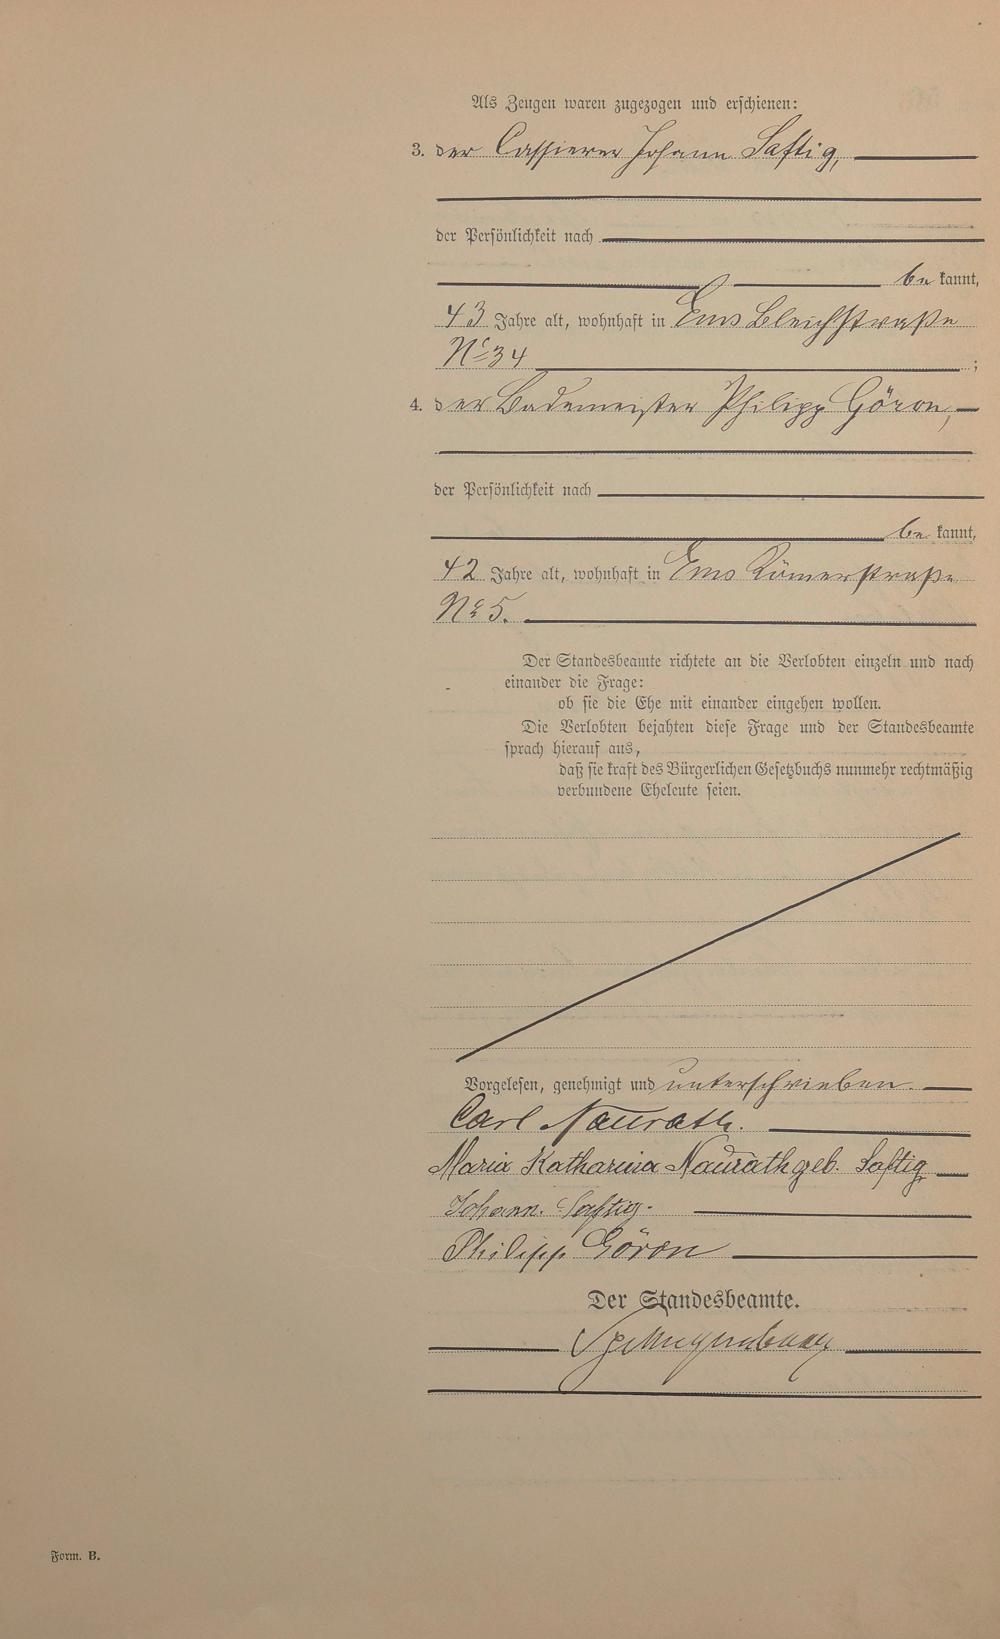 Als Zeugen waren zugezogen und erschienen:
3. der Cassierer Johann Saftig,
der Persönlichkeit nach
be kannt,
43 Jahre alt, wohnhaft in Ems Bleichstraße
No 34 ;
4. der Bademeister Philipp Göron,
der Persönlichkeit nach
be kannt,
42 Jahre alt, wohnhaft in Ems Römerstraße
No 5.
Der Standesbeamte richtete an die Verlobten einzeln und nach
einander die Frage:
ob sie die Ehe mit einander eingehen wollen.
Die Verlobten bejahten diese Frage und der Standesbeamte
sprach hierauf aus,
daß sie kraft des Bürgerlichen Gesetzbuchs nunmehr rechtmäßig
verbundene Eheleute seien.
Vorgelesen, genehmigt und unterschrieben.
Carl Naurath.
Maria Katharina Naurath geb. Saftig
Johann. Saftig.
Philipp Göron
Der Standesbeamte.
Form. B.